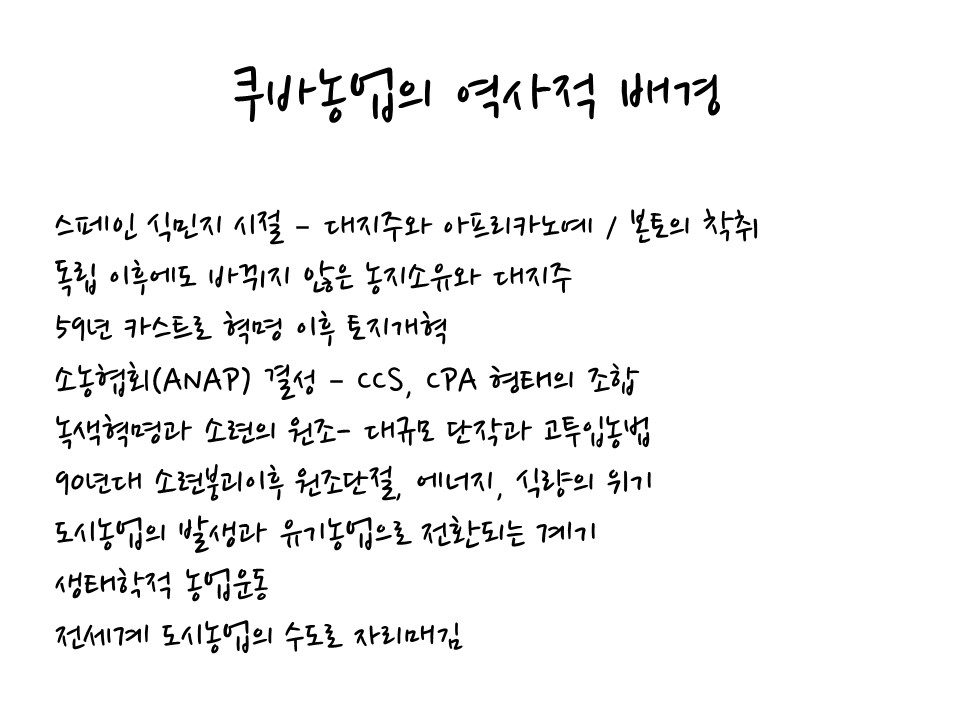 쿠바농업의 역사적 배경
스페인 식민지 시절 - 대지주와 아프리카노예 / 본토의 착취
독립 이후에도 바뀌지 않은 농지소유와 대지주
59년 카스트로 혁명 이후 토지개혁
소농협회(ANAP) 결성 - CCS, CPA 형태의 조합
녹색혁명과 소련의 원조- 대규모 단작과 고투입농법
90년대 소련붕괴이후 원조단절, 에너지, 식량의 위기
도시농업의 발생과 유기농업으로 전환되는 계기
생태학적 농업운동
전세계 도시농업의 수도로 자리매김